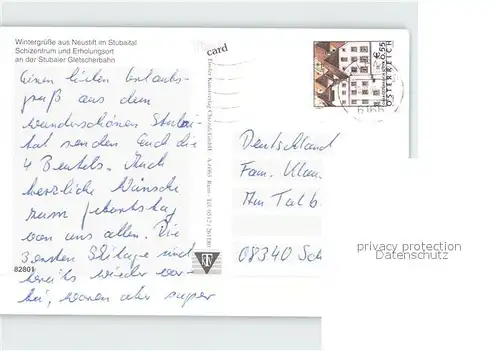 Wintergrüße aus Neustift im Stubaital
Schizentrum und Erholungsort
an der Stubaier Gletscherbahn
card
0,55
ÖSTERREICH
Einen lieben Urlaubs-
gruß aus dem
wunderschönen Stubai-
tal senden Euch die
4 Beutels. Auch
herzliche Wünsche
zum Geburtstag
von uns allen. Die
3 ersten Skitage sind
bereits wieder vor-
bei, waren aber super
82801
Deutschland
Fam.
Am Talb
08340 Sch
privacy protection
Datenschutz